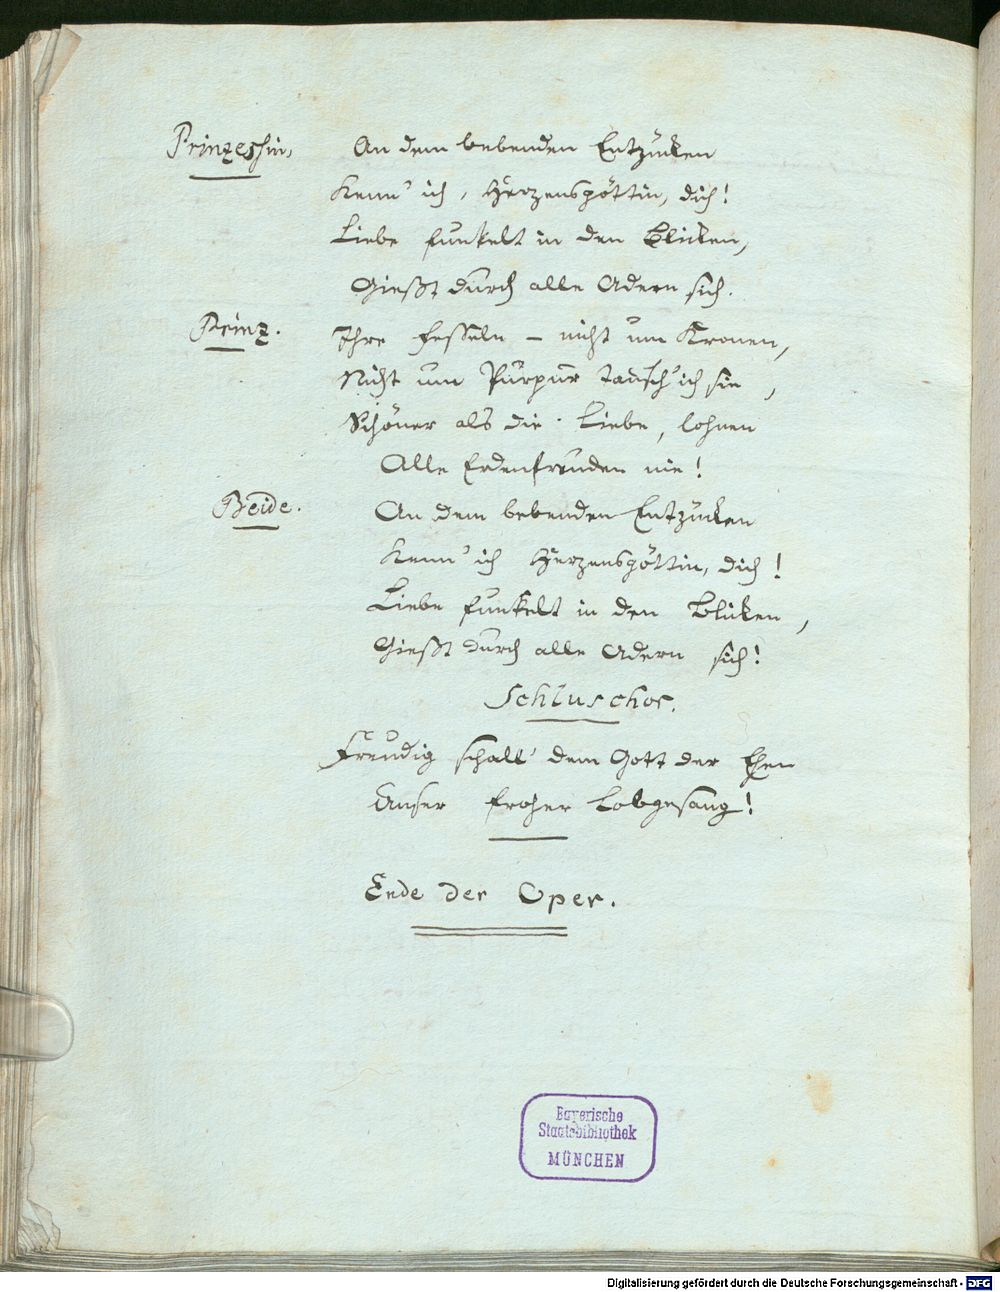 Prinzessin, An dem bebenden Entzücken
Kenn' ich, Herzensgöttin, dich!
Liebe funkelt in den Blicken,
Gießt durch alle Adern sich.
Prinz. Ihre Fesseln – nicht um Kronen,
Nicht um Purpur tausch' ich sie,
Schöner als die Liebe, lohnen
Alle Erdenfreuden nie!
Beide. An dem bebenden Entzücken
Kenn' ich Herzensgöttin, dich!
Liebe funkelt in den Blicken,
Gießt durch alle Adern sich!
Schluschor.
Freudig schall' dem Gott der Ehen
Unser froher Lobgesang!
Ende der Oper.
Bayerische
Staatsbibliothek
MÜNCHEN
Digitalisierung gefördert durch die Deutsche Forschungsgemeinschaft - DFG